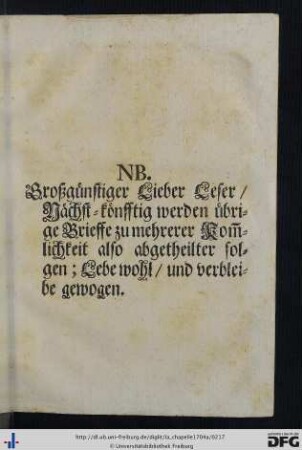 NB.
Großgünstiger Lieber Leser /
Nächst-könfftig werden übri-
ge Brieffe zu mehrerer Kom̃-
lichkeit also abgetheilter fol-
gen; Lebe wohl / und verblei-
be gewogen.
http://dl.ub.uni-freiburg.de/diglit/la_chapelle1704a/0217
© Universitätsbibliothek Freiburg
DFG